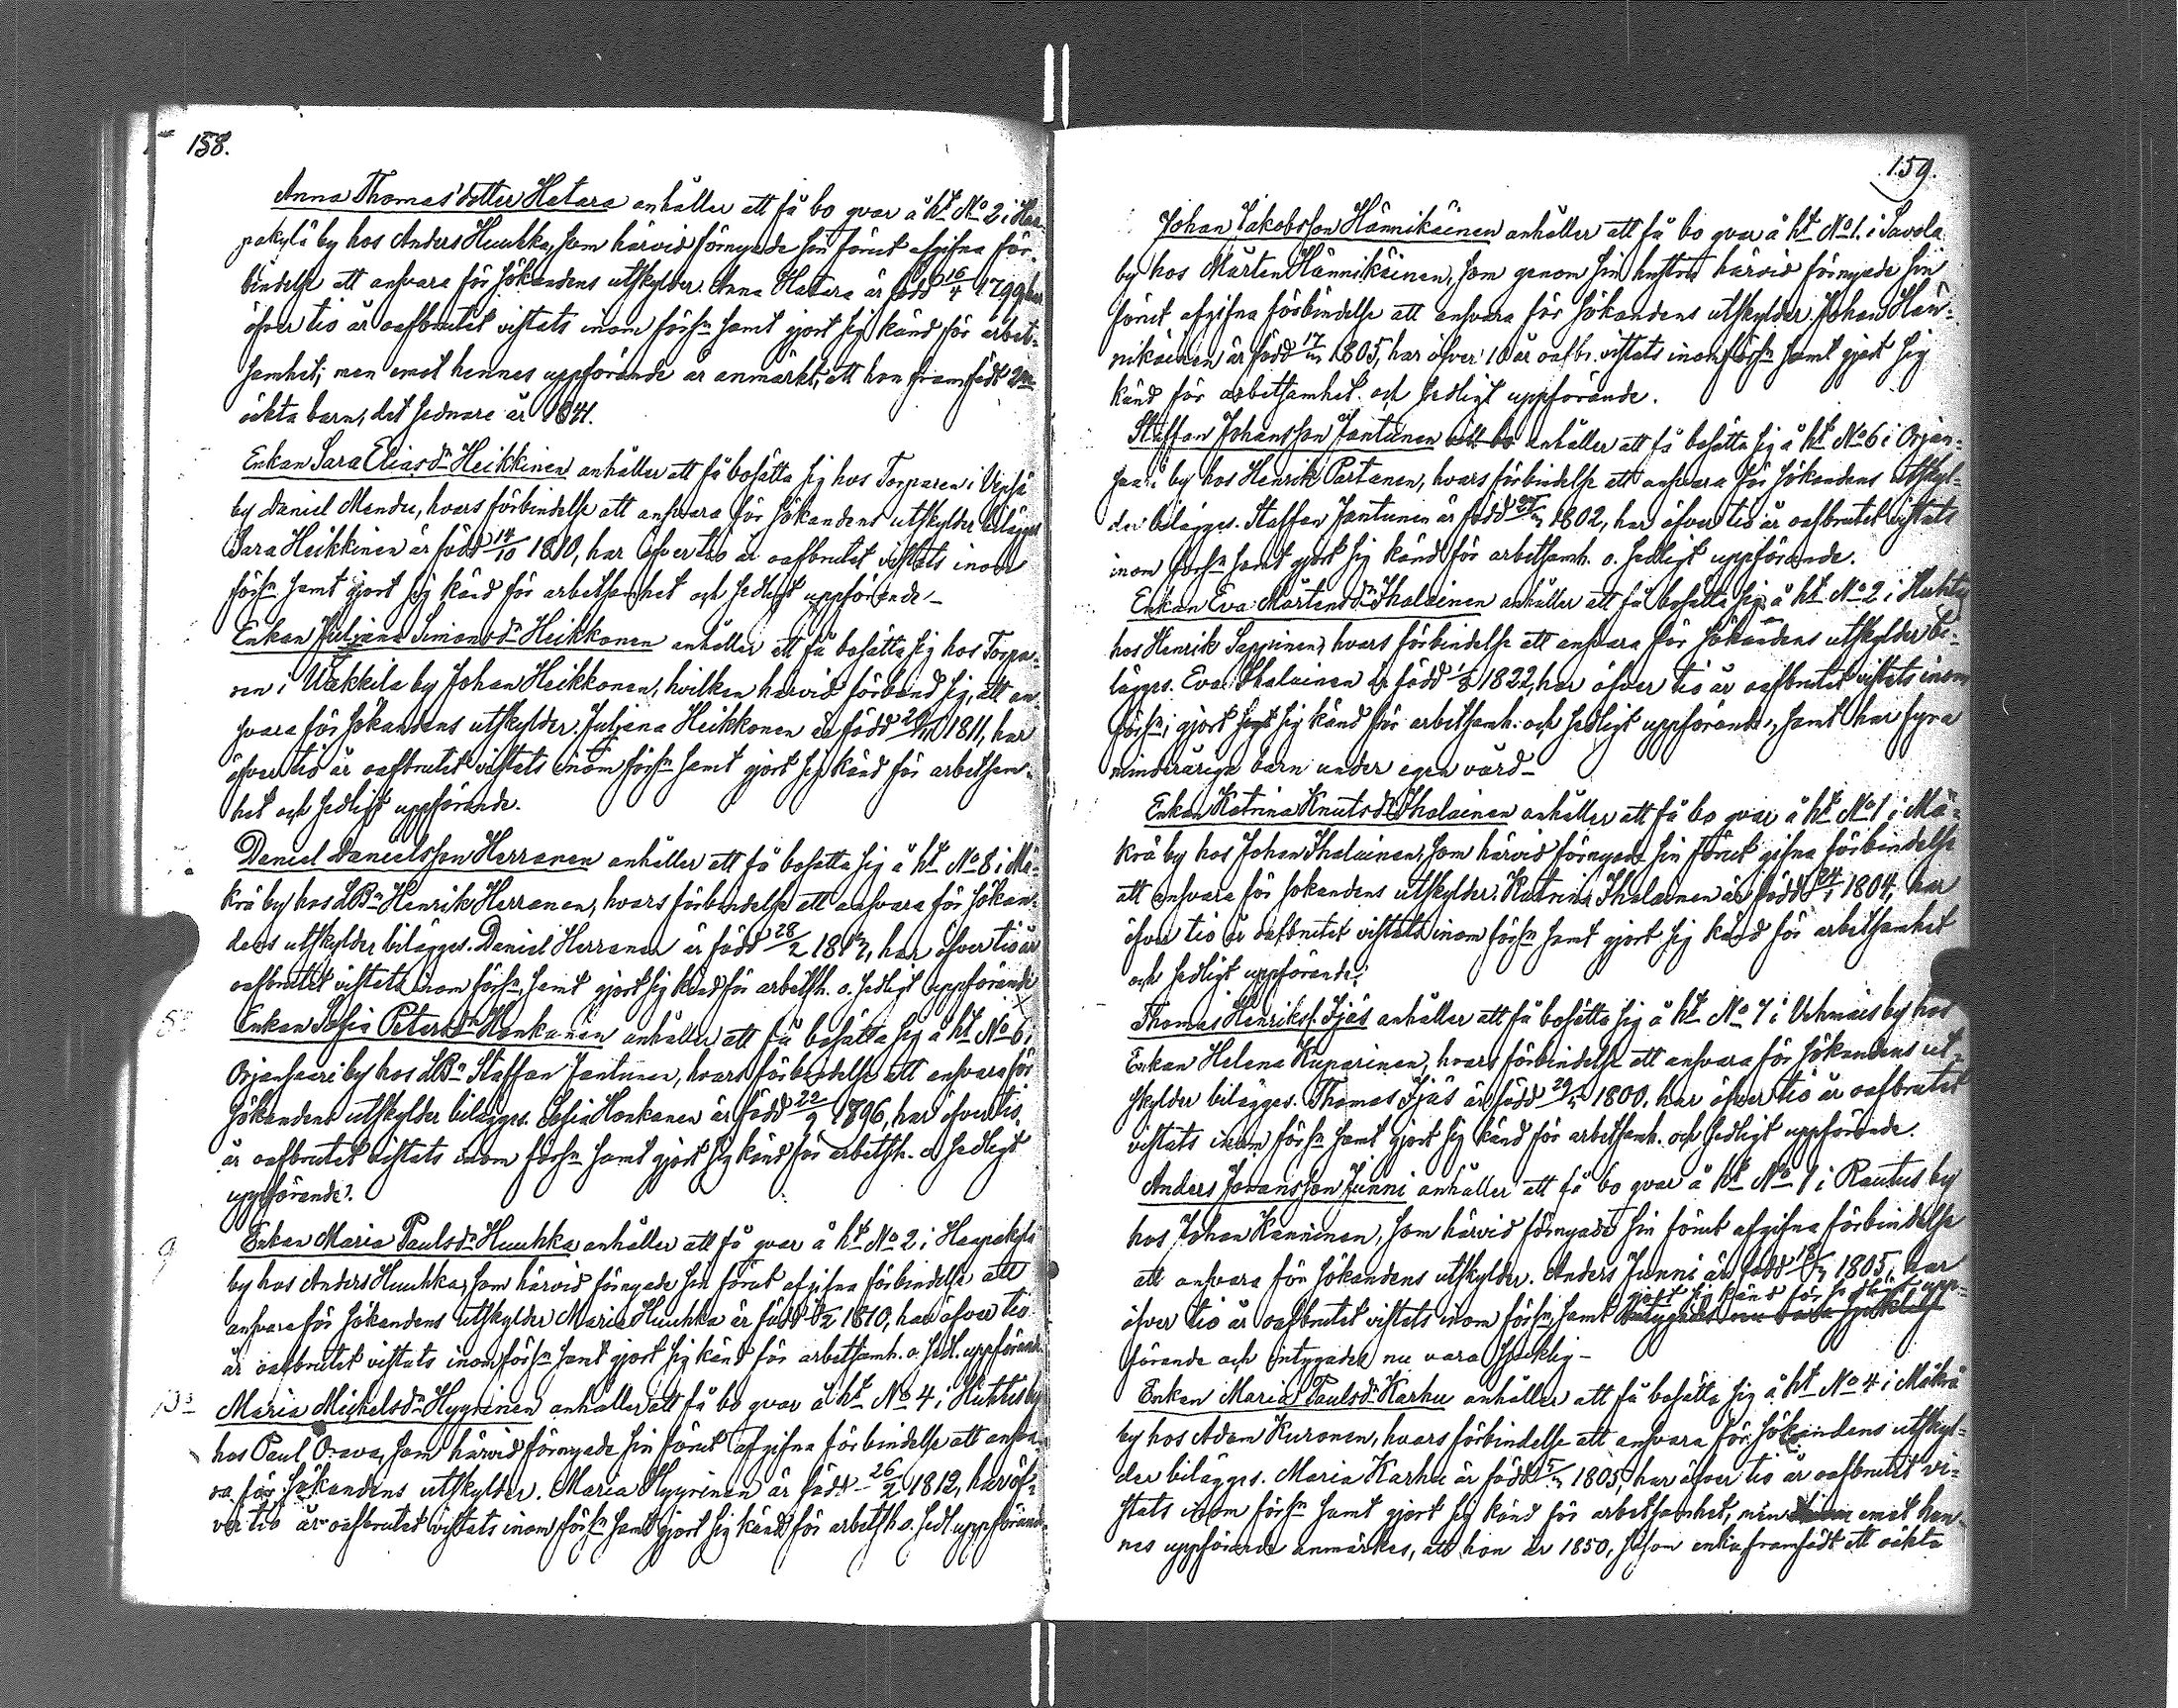 158.
Anna Thomas'dotter Hatara anhåller att få bo qvar å ht No 2 i Haa-
pakylä by hos Anders Huuhka, som härvid förnyade sin förut afgifna för-
bindelse att ansvara för sökandens utskylder. Anna Hatara är född 16/4 1799, har
öfver tio år oafbrutet vistats inom förs:n samt gjort sig känd för arbet-
samhet; men emot hennes uppförande är anmärkt, att hon framfödt 2ne
oäkta barn, det sednare år 1841.
Enkan Sara Eliasd:r Heikkinen anhåller att få bosätta sig hos Torparen i
by Daniel Mendu, hvars förbindelse att ansvara för sökandens utskylder bilägges
Sara Heikkinen är född 14/10 1810, har öfver tio år oafbrutet vistats inom
förs:n samt gjort sig känd för arbetsamhet och sedligt uppförande.–
Enkan Juljana Simonsd:r Heikkonen anhåller att få bosätta sig hos Torpa-
ren i Wakkila by Johan Heikkonen, hvilken härvid förband sig, att an-
svara för sökandens utskylder. Juljana Heikkonen är född 1811, har
öfver tio år oafbrutet vistats inom förs:n samt gjort sig känd för arbetsam-
het och sedligt uppförande.
Daniel Danielsson Herranen anhåller att få bosätta sig å ht No 8 i Mä-
krä by hos LB:n Henrik Herranen, hvars förbindelse att ansvara för sökan-
dens utskylder bilägges. Daniel Herranen är född 28/2 har öfver tio år
oafbrutet vistats inom förs:n, samt gjort sig känd för arbetsh. o. sedligt uppförande
Enkan Sofia Petersd:r Honkanen anhåller att få bosätta sig å ht No 6 i
Orjansaari by hos LB:n Staffan Jantunen, hvars förbindelse att ansvara för
sökandens utskylder bilägges. Sofia Honkanen är född 1796, har öfver tio
år oafbrutet vistats inom förs:n samt gjort sig känd för arbetsh. o sedligt
uppförande.
Enkan Maria Paulsd:r Huuhka anhåller att få qvar å ht No 2 i Haapakylä
by hos Anders Huuhka, som härvid förnyade sin förut afgifna förbindelse att
ansvara för sökandens utskylder Maria Huuhka är född 1810, har öfver tio
år oafbrutet vistats inom förs:n samt gjort sig känd för arbetsamh. o. sedl. uppförande.
Maria Michelsd:r Hyyrinen anhåller att få bo qvar å ht No 4 i Huhtis by
hos Paul Orava, som härvid förnyade sin förut afgifna förbindelse att ansva-
ra för sökandens utskylder. Maria Hyyrinen är född 26/2 1812, har öf-
ver tio år oafbrutet vistats inom förs:n samt gjort sig känd för arbetsh o. sedl. uppförande
159.
Johan Jakobsson Hännikäinen anhåller att få bo qvar å ht No 1. i Savola
by hos Mårten Hännikäinen, som genom sin hustru härvid förnyade sin
förut afgifna förbindelse att ansvara för sökandens utskylder. Johan Hän-
nikäinen är född 1805, har öfver 10 år oafbr. vistats inom förs:n samt gjort sig
känd för arbetsamhet och sedligt uppförande.
Staffan Johansson Jantunen att bo anhåller att få bosätta sig å ht No 6 i Orjan-
saari by hos Henrik Partanen, hvars förbindelse att ansvara för sökandens utskyl-
der bilägges. Staffan Jantunen är född 1802, har öfver tio år oafbrutet vistats
inom förs:n samt gjort sig känd för arbetsamh. o. sedligt uppförande.
Enkan Eva Mårtensd:r Ihalainen anhåller att få bosätta sig å ht No 2 i Huhtis
hos Henrik Sappinen, hvars förbindelse att ansvara för sökandens utskylder bi-
lägges. Eva Ihalainen är född 1822, har öfver tio år oafbrutet vistats inom
förs:n, gjort sig känd för arbetsamh. och sedligt uppförande, samt har fyra
minderåriga barn under egen vård–
Enkan Katrina Knutsd:r Ihalainen anhåller att få bo qvar å ht No 1 i Mä-
krä by hos Johan Ihalainen, som härvid förnyade sin förut gifna förbindelse
att ansvara för sökandens utskylder. Katrina Ihalainen är född 24/1 1804, har
öfver tio år oafbrutet vistats inom förs:n samt gjort sig känd för arbetsamhet
och sedligt uppförande.
Thomas Henrikss. Ijäs anhåller att få bosätta sig å ht No 7 i Vehmais by hos
Enkan Helena Kuparinen, hvars förbindelse att ansvara för sökandens ut-
skylder bilägges. Thomas Ijäs är född 1800. har öfver tio år oafbrutet
vistats inom förs:n samt gjort sig känd för arbetsamh. och sedligt uppförande.
Anders Johansson Junni anhåller att få bo qvar å ht No 1 i Rautus by
hos Johan Kanninen, som härvid förnyade sin förut afgifna förbindelse
att ansvara för sökandens utskylder. Anders Junni är född 1805, har
öfver tio år oafbrutet vistats inom förs:n samt gjort sig känd för sedligt upp-
förande och intygades nu vara sjuklig–
Enkan Maria Paulsd:r Karhu anhåller att få bosätta sig å ht No 4 i Mäkrä
by hos Adam Kuronen, hvars förbindelse att ansvara för sökandens utskyl-
der bilägges. Maria Karhu är född 1805, har öfver tio år oafbrutet vi-
stats inom förs:n samt gjort sig känd för arbetsamhet, men emot hen-
nes uppförande anmärkes, att hon år 1850, såsom enka framfödt ett oäkta